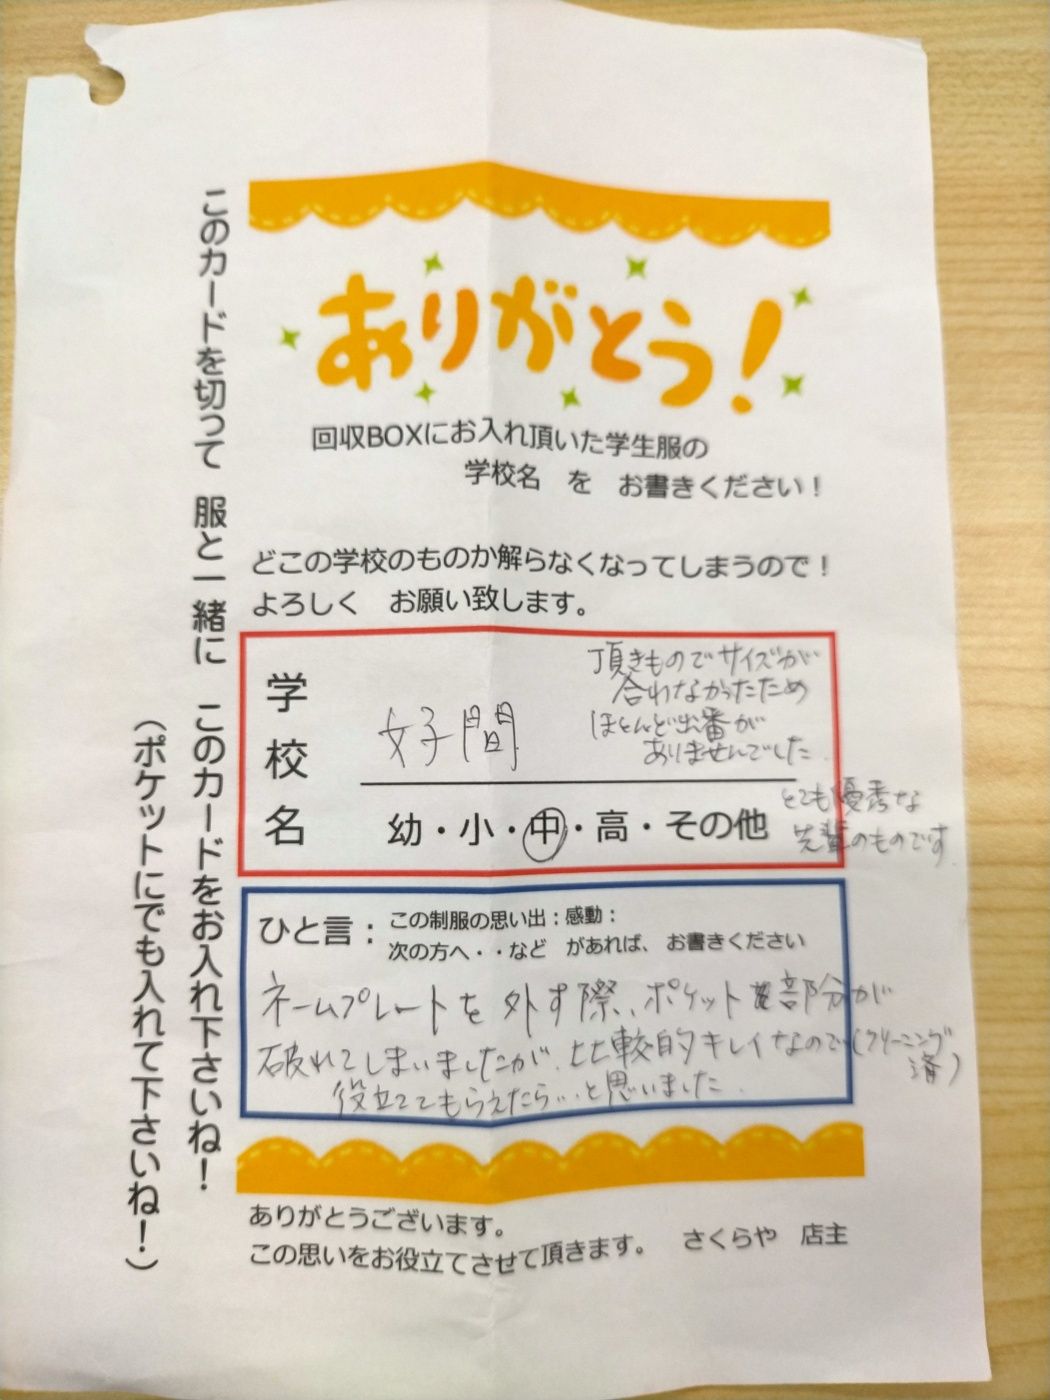 ありがとう!
回収BOXにお入れ頂いた学生服の
学校名 を お書きください!
どこの学校のものか解らなくなってしまうので!
よろしく お願い致します。
学校名
好間
頂きものでサイズが
合わなかったため
ほとんど出番が
ありませんでした.
とても優秀な
先輩のものです.
幼・小・中・高・その他
ひと言:
この制服の思い出:感動:
次の方へ・・など があれば、 お書きください
ネームプレートを外す際、ポケット部分が
破れてしまいましたが、比較的キレイなので(クリーニング
済)
役立ててもらえたら...と思いました.
ありがとうございます。
この思いをお役立てさせて頂きます。 さくらや 店主
このカードを切って 服と一緒に このカードをお入れ下さいね!
(ポケットにでも入れて下さいね!)